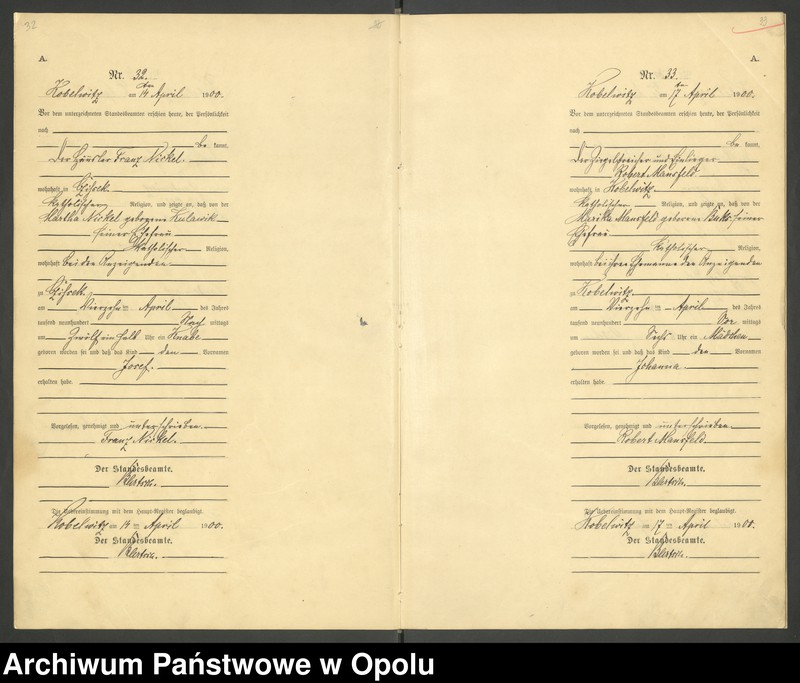 32
A.
Nr. 32.
Kobelwitz am 14 ten April 1900.
Vor dem unterzeichneten Standesbeamten erschien heute, der Persönlichkeit
nach
be kannt,
Der Häusler Franz Nickel.
wohnhaft in
Katholischer Religion, und zeigte an, daß von der
Martha Nickel geborene Kulawik
seiner Ehefrau
Katholischer Religion,
wohnhaft bei dem Anzeigenden
zu
am Vierzehn ten April des Jahres
tausend neunhundert Nach mittags
um Zwölf ein halb Uhr ein Knabe
geboren worden sei und daß das Kind den Vornamen
Josef.
erhalten habe.
Vorgelesen, genehmigt und unterschrieben
Franz Nickel.
Der Standesbeamte.
Die Uebereinstimmung mit dem Haupt-Register beglaubigt.
Kobelwitz am 14 ten April 1900.
Der Standesbeamte.
33
A.
Nr. 33.
Kobelwitz am 17 ten April 1900.
Vor dem unterzeichneten Standesbeamten erschien heute, der Persönlichkeit
nach
be kannt,
Der Ziegelstreicher und Einlieger
Robert Mansfeld
wohnhaft in Kobelwitz
Katholischer Religion, und zeigte an, daß von der
Mansfeld geborene seiner
Ehefrau
Katholischer Religion,
wohnhaft bei ihrem Ehemanne dem Anzeigenden
zu Kobelwitz
am Vierzehn ten April des Jahres
tausend neunhundert Vor mittags
um Sechs Uhr ein Mädchen
geboren worden sei und daß das Kind den Vornamen
Johanna
erhalten habe.
Vorgelesen, genehmigt und unterschrieben
Robert Mansfeld.
Der Standesbeamte.
Die Uebereinstimmung mit dem Haupt-Register beglaubigt.
Kobelwitz am 17 ten April 1900.
Der Standesbeamte.
Archiwum Państwowe w Opolu